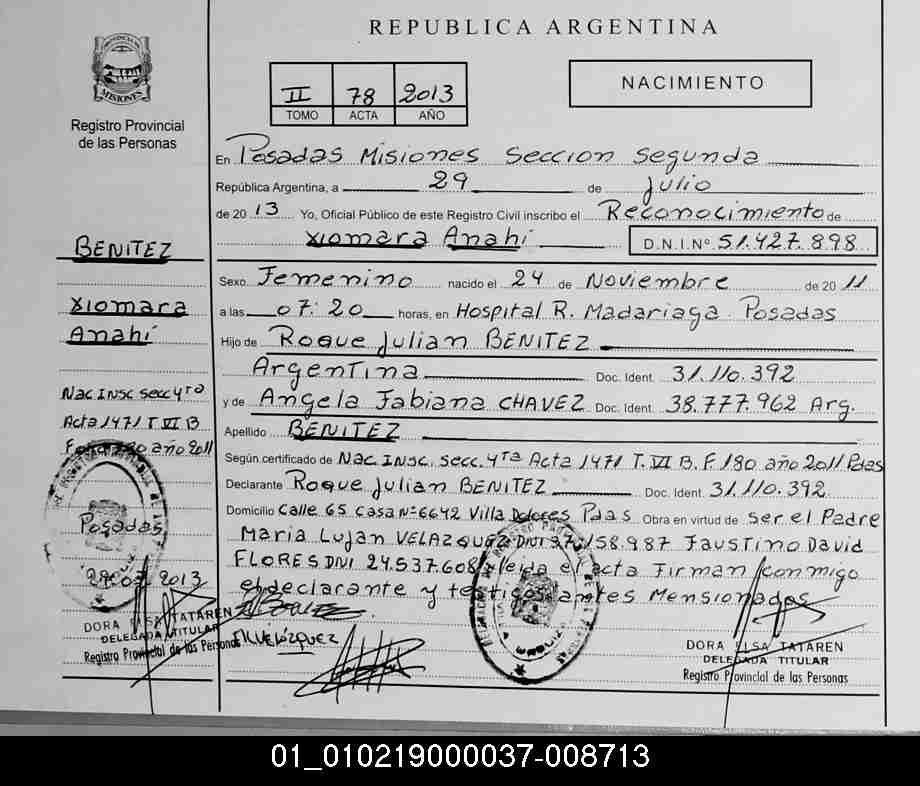 REPUBLICA ARGENTINA
PROVINCIA DE
MISIONES
Registro Provincial
de las Personas
II 78 2013
TOMO ACTA AÑO
NACIMIENTO
En Posadas Misiones Seccion Segunda
República Argentina, a 29 de Julio
de 2013 Yo, Oficial Público de este Registro Civil inscribo el Reconocimiento de
Xiomara Anahí D.N.I.Nº 51.427.898
Sexo Femenino nacido el 24 de Noviembre de 2011
a las 07:20 horas, en Hospital R. Madariaga Posadas
Hijo de Roque Julian BENITEZ
Argentina Doc. Ident. 31.110.392
y de Angela Fabiana CHAVEZ Doc. Ident. 38.777.962 Arg.
Apellido BENITEZ
Según certificado de Nac. Insc. secc. 4ta Acta 1471 T. VI B. F. 180 año 2011 Pdas
Declarante Roque Julian BENITEZ Doc. Ident. 31.110.392
Domicilio Calle 65 Casa Nº 6642 Villa Dolores Pdas Obra en virtud de ser el Padre
Maria Lujan VELAZQUEZ DNI 158.987 Faustino David
FLORES DNI 24.537.608 leida el acta Firman conmigo
el declarante y testigos antes Mensionados
BENITEZ
Xiomara
Anahí
Nac. Insc secc 4ta
Acta 1471 T VI B
año 2011
Posadas
2013
DORA ELSA TATAREN
DELEGADA TITULAR
Registro Provincial de las Personas
Velázquez
DORA ELSA TATAREN
DELEGADA TITULAR
Registro Provincial de las Personas
01_010219000037-008713